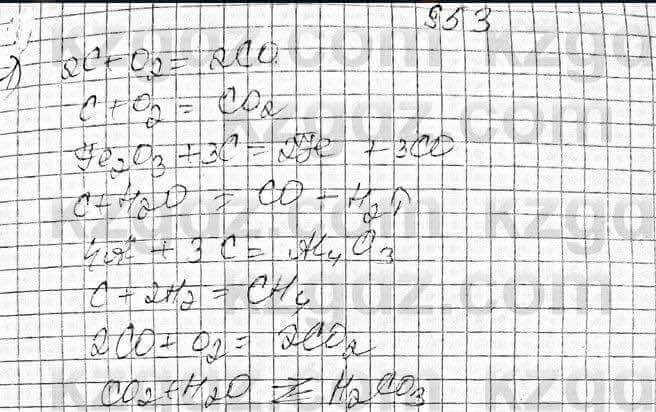 §53
1) 2C + O₂ = 2CO
C + O₂ = CO₂
Fe₂O₃ + 3C = 2Fe + 3CO
C + H₂O = CO + H₂↑
4Al + 3C = Al₄O₃
C + 2H₂ = CH₄
2CO + O₂ = 2CO₂
CO₂ + H₂O ⇄ H₂CO₃